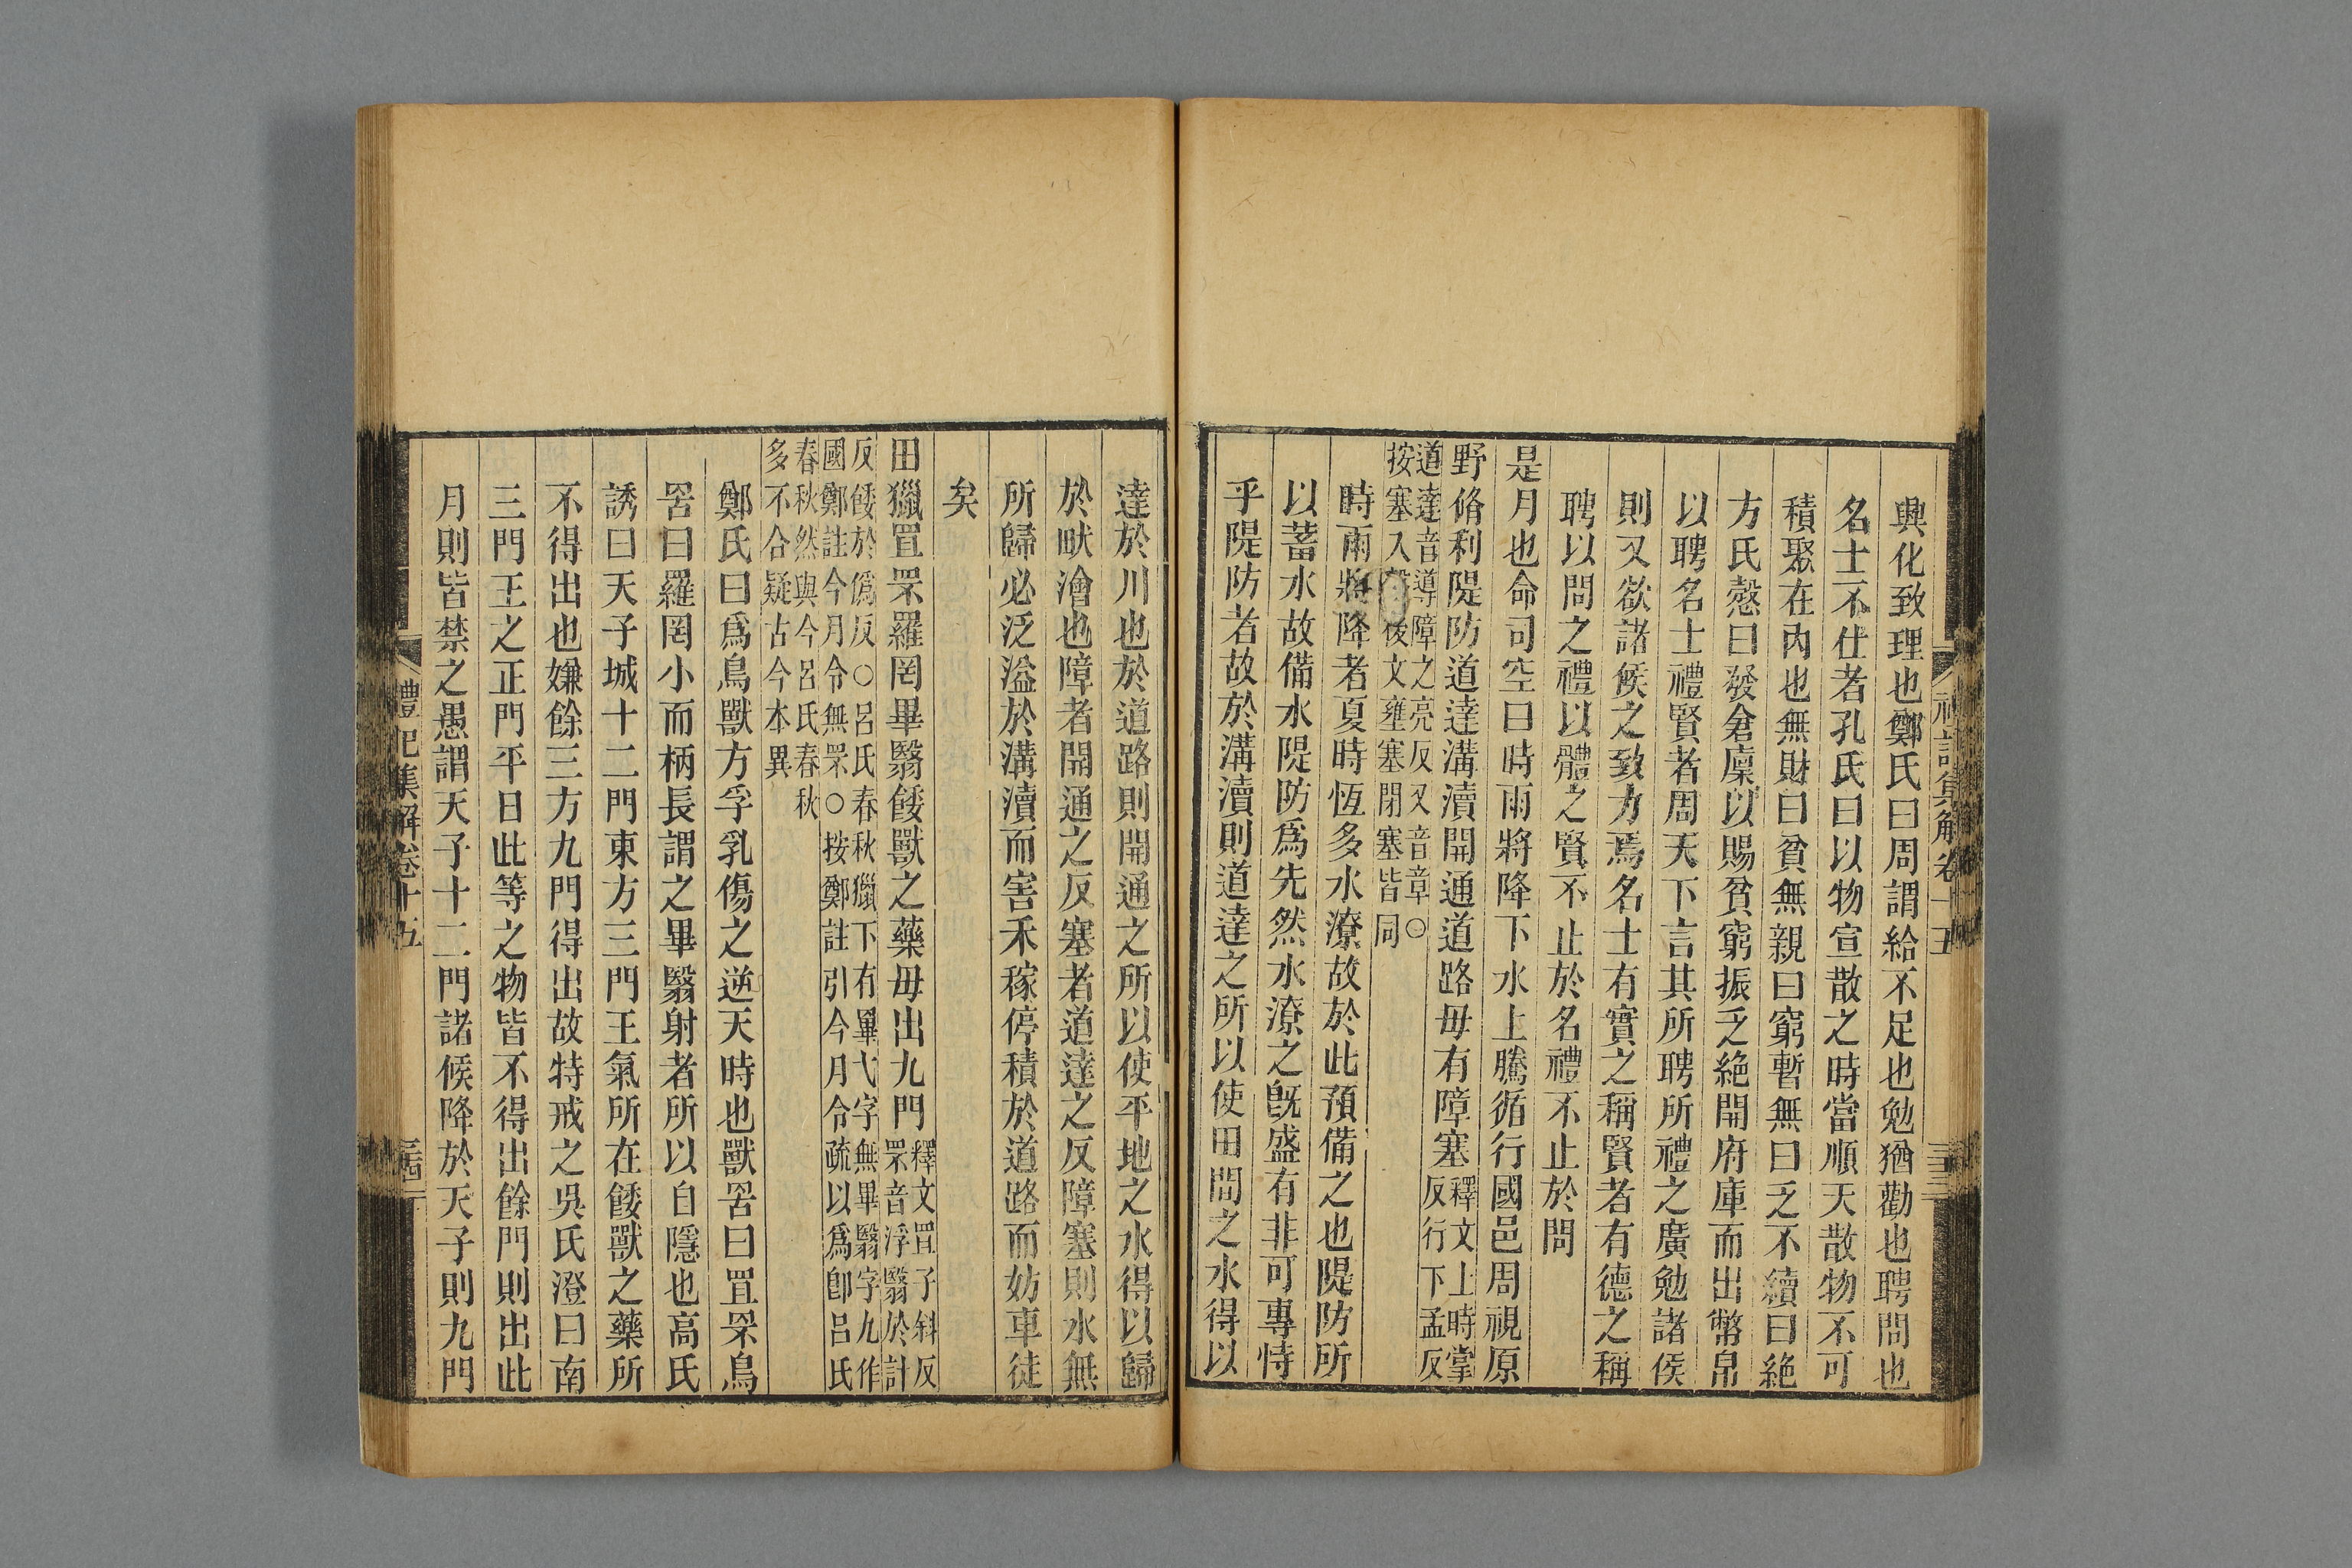 禮記集解卷十五
興化致理也鄭氏曰周謂給不足也勉猶勸也聘問也
名士不仕者孔氏曰以物宣散之時當順天散物不可
積聚在內也無財曰貧無親曰窮暫無曰乏不續曰絕
方氏慤曰發倉廩以賜貧窮振乏絕開府庫而出幣帛
以聘名士禮賢者周天下言其所聘所禮之廣勉諸侯
則又欲諸侯之致力焉名士有實之稱賢者有德之稱
聘以問之禮以體之賢不止於名禮不止於問
是月也命司空曰時雨將降下水上騰循行國邑周視原
野脩利隄防道達溝瀆開通道路毋有障塞釋文上時掌
反行下孟反
道達音導障之亮反又音章○
按塞入後文壅塞閉塞皆同
時雨將降者夏時恆多水潦故於此預備之也隄防所
以蓄水故備水隄防爲先然水潦之旣盛有非可專恃
乎隄防者故於溝瀆則道達之所以使田間之水得以
達於川也於道路則開通之所以使平地之水得以歸
於畎澮也障者開通之反塞者道達之反障塞則水無
所歸必泛溢於溝瀆而害禾稼停積於道路而妨車徒
矣
田獵罝罘羅罔畢翳餧獸之藥毋出九門釋文罝子斜反
罘音浮翳於計
反餧於僞反○呂氏春秋獵下有畢弋字無畢翳字九作
國鄭註今月令無罘○按鄭註引今月令疏以爲卽呂氏
春秋然與今呂氏春秋
多不合疑古今本異
鄭氏曰爲鳥獸方孚乳傷之逆天時也獸罟曰罝罘鳥
罟曰羅罔小而柄長謂之畢翳射者所以自隱也高氏
誘曰天子城十二門東方三門王氣所在餧獸之藥所
不得出也嫌餘三方九門得出故特戒之吳氏澄曰南
三門王之正門平日此等之物皆不得出餘門則出此
月則皆禁之愚謂天子十二門諸侯降於天子則九門
禮記集解卷十五